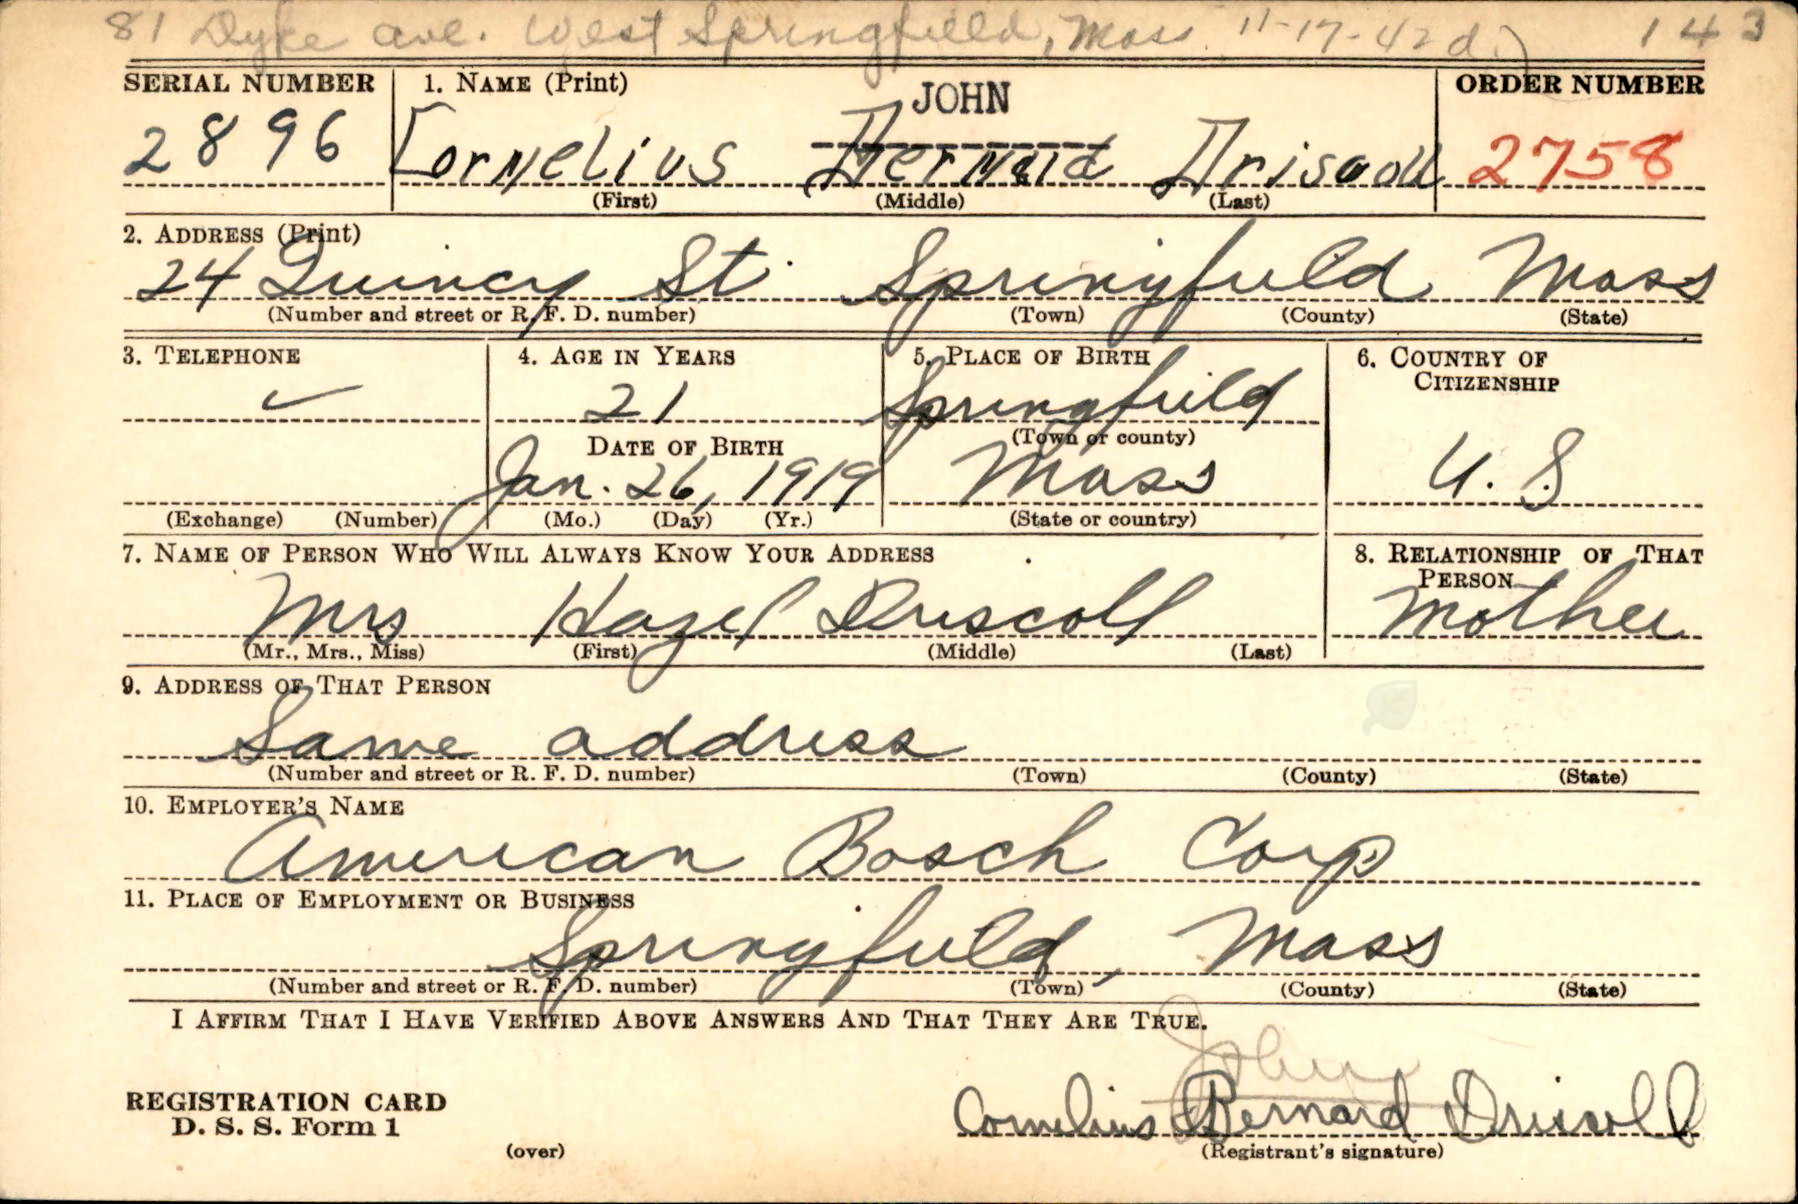 81 Dyke ave. West Springfield, Mass. 11-17-42 d.) 143
SERIAL NUMBER 1. NAME (Print) ORDER NUMBER
JOHN
2896 Cornelius Bernard Driscoll 2758
(First) (Middle) (Last)
2. ADDRESS (Print)
24 Quincy St. Springfield Mass
(Number and street or R. F. D. number) (Town) (County) (State)
3. TELEPHONE 4. AGE IN YEARS 5. PLACE OF BIRTH 6. COUNTRY OF CITIZENSHIP
✓ 21 Springfield
DATE OF BIRTH (Town or county)
Jan. 26, 1919 Mass U.S
(Exchange) (Number) (Mo.) (Day) (Yr.) (State or country)
7. NAME OF PERSON WHO WILL ALWAYS KNOW YOUR ADDRESS 8. RELATIONSHIP OF THAT PERSON
Mrs Hazel Driscoll Mother
(Mr., Mrs., Miss) (First) (Middle) (Last)
9. ADDRESS OF THAT PERSON
Same address
(Number and street or R. F. D. number) (Town) (County) (State)
10. EMPLOYER'S NAME
American Bosch Corp
11. PLACE OF EMPLOYMENT OR BUSINESS
Springfield, Mass
(Number and street or R. F. D. number) (Town) (County) (State)
I AFFIRM THAT I HAVE VERIFIED ABOVE ANSWERS AND THAT THEY ARE TRUE.
John
REGISTRATION CARD
D. S. S. Form 1
Cornelius Bernard Driscoll
(over) (Registrant's signature)